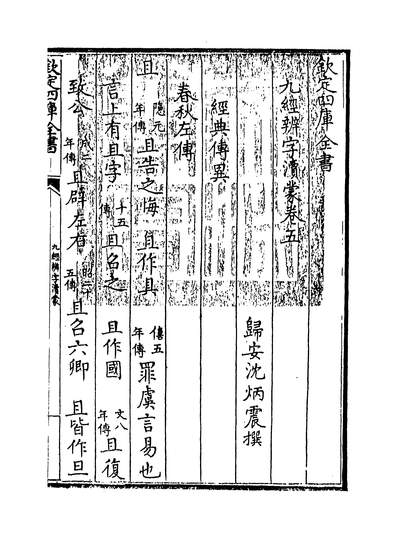 欽定四庫全書
九經辨字瀆蒙卷五
歸安沈炳震撰
經典傳異
春秋左傳
且 隱元年傳 且告之悔 且作具 僖五年傳 罪虞言易也
言上有且字 十五傳 且召之 且作國 文八年傳 且復
致公 成二年傳 且辟左右 昭二十五傳 且召六卿 且皆作旦
欽定四庫全書
九經辨字瀆蒙